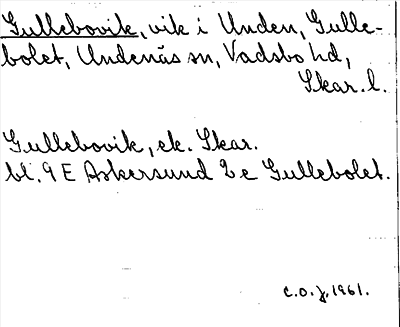 Gullebovik, vik i Unden, Gulle-
bolet, Undenäs sn, Vadsbo hd,
Skar. l.
Gullebovik, ek. Skar.
bl. 9 E Askersund 2 e Gullebolet.
C.O.J. 1961.